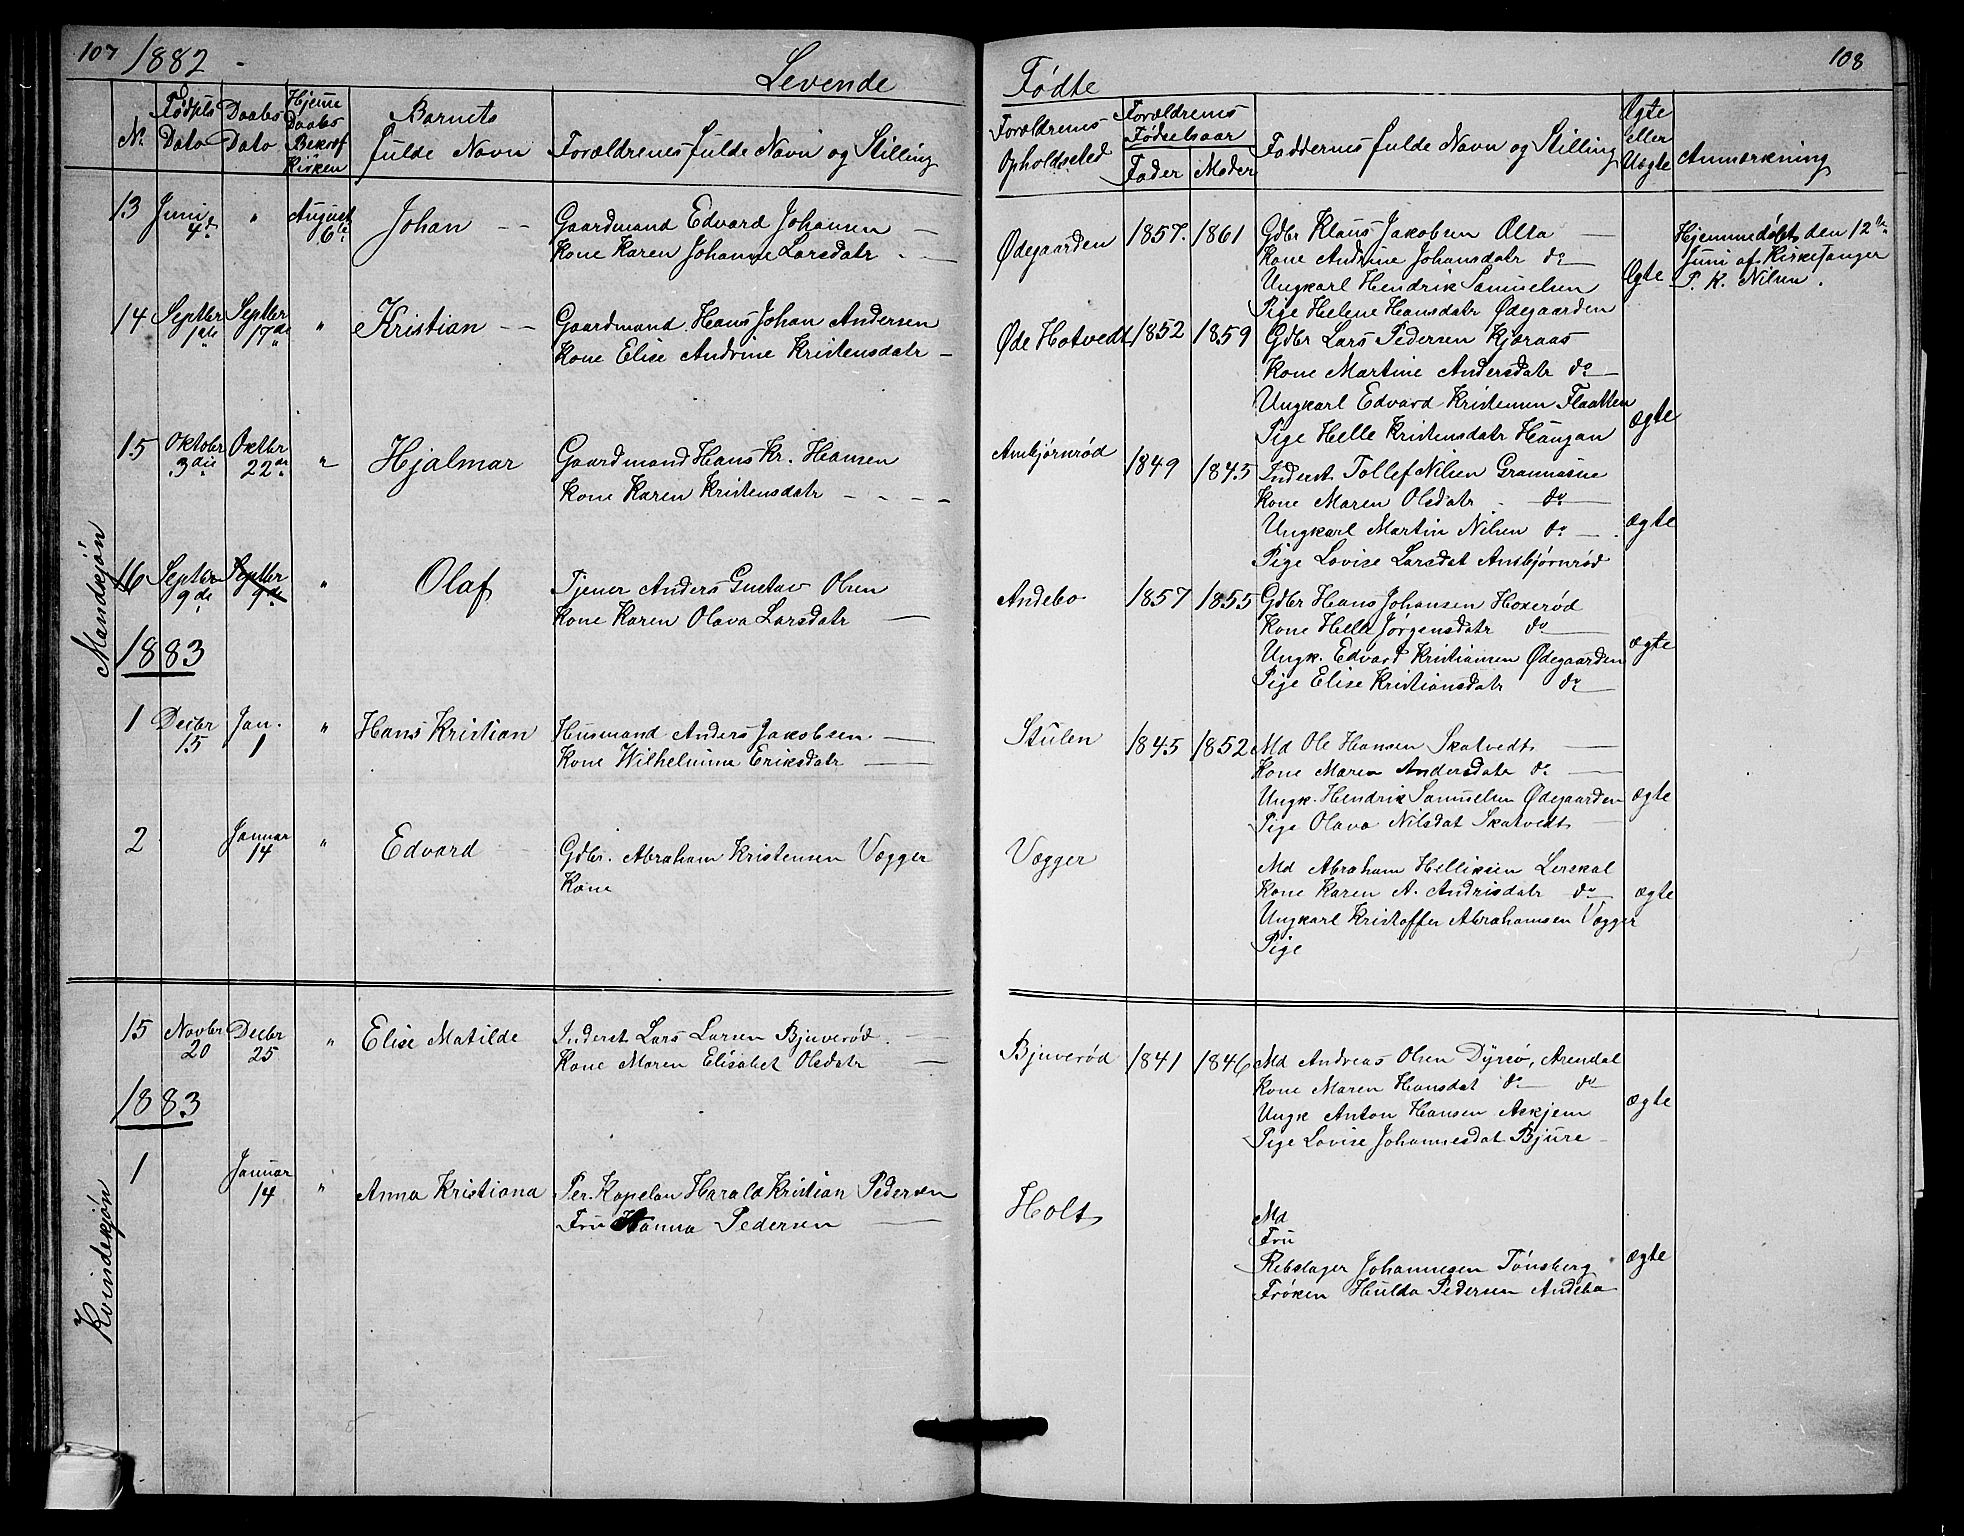 107 1882
Levende
Fødte
108
N.
Fødsels Dato
Daabs Dato
Hjemme Daabs Bekræf Kirken
Barnets fulde Navn
Forældrenes fulde Navn og Stilling
Forældrenes Opholdssted
Forældrenes Fødselsaar
Fader Moder
Faddernes fulde Navn og Stilling
Ægte eller Uægte
Anmærkning
Mandkjøn
13 Juni 4de " August 6te Johan Gaardmand Edvard Johansen
Kone Karen Johanne Larsdatr
Ødegaarden 1857. 1861 Gdbr Klaus Jakobsen
Kone Andrine Johansdatr do
Ungkarl Hendrik Samuelsen
Pige Helene Hansdatr Ødegaarden
Ægte
Hjemmedøbt den 12te
Juni af Kirkesanger
P. K. Nilsen.
14 Septbr 1ste Septbr 17de " Kristian Gaardmand Hans Johan Andersen
Kone Elise Andrine Kristensdatr
Øde Hotvedt 1852 1859 Gdbr Lars Pedersen Kjæraas
Kone Martine Andersdatr do
Ungkarl Edvard Kristensen Flaatten
Pige Helle Kristensdatr Haugan
ægte
15 Oktober 3die Oktbr 22de " Hjalmar Gaardmand Hans Kr. Hansen
Kone Karen Kristensdatr
Ambjørnrød 1849 1845 Inderst Tollef Nilsen
Kone Maren Olsdatr do
Ungkarl Martin Nilsen do
Pige Lovise Larsdat Ambjørnrød
ægte
16 Septbr 9de Septbr 9de " Olaf Tjener Anders Gustav Olsen
Kone Karen Olava Larsdatr
Andebo 1857 1855 Gdbr Hans Johansen Hoxerød
Kone Helle Jørgensdatr do
Ungk. Edvard Kristiansen Ødegaarden
Pige Elise Kristiansdatr do
ægte
1883
1 Decbr 15 Jan. 1 " Hans Kristian Husmand Anders Jakobsen
Kone Wilhelmine Eriksdatr
Stulen 1845 1852 Md Ole Hansen Skatvedt
Kone Maren Andersdatr do
Ungk. Hendrik Samuelsen Ødegaarden
Pige Olava Nilsdat Skatvedt
ægte
2 Januar 14 " Edvard Gdbr. Abraham Kristensen Vægger
Kone
Vægger
Md Abraham Helliksen Lerskal
Kone Karen A. Andrisdatr do
Ungkarl Kristoffer Abrahamsen Vægger
Pige
ægte
Kvindekjøn
15 Novbr 20 Decbr 25 " Elise Matilde Inderst Lars Larsen Bjuverød
Kone Maren Elisabet Olsdatr
Bjuverød 1841 1846 Md Andreas Olsen Dyrsø, Arendal
Kone Maren Hansdat do do
Ungk Anton Hansen Askjem
Pige Lovise Johannesdat Bjure
ægte
1883
1 Januar 14 " Anna Kristiana Per. Kapelan Harald Kristian Pedersen
Fru Hanna Pedersen
Holt
Md
Fru
Rebslager Johannesen Tønsberg
Frøken Hulda Pedersen Andebo
ægte